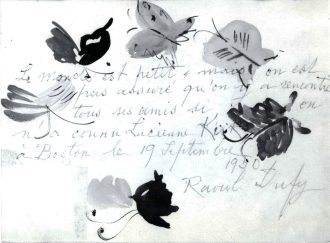 Le monde est petit, mais on est
pas assuré qu'on y a rencontré
tous ses amis si on
n'a connu Lucienne
à Boston le 19 Septembre
1950
Raoul Dufy